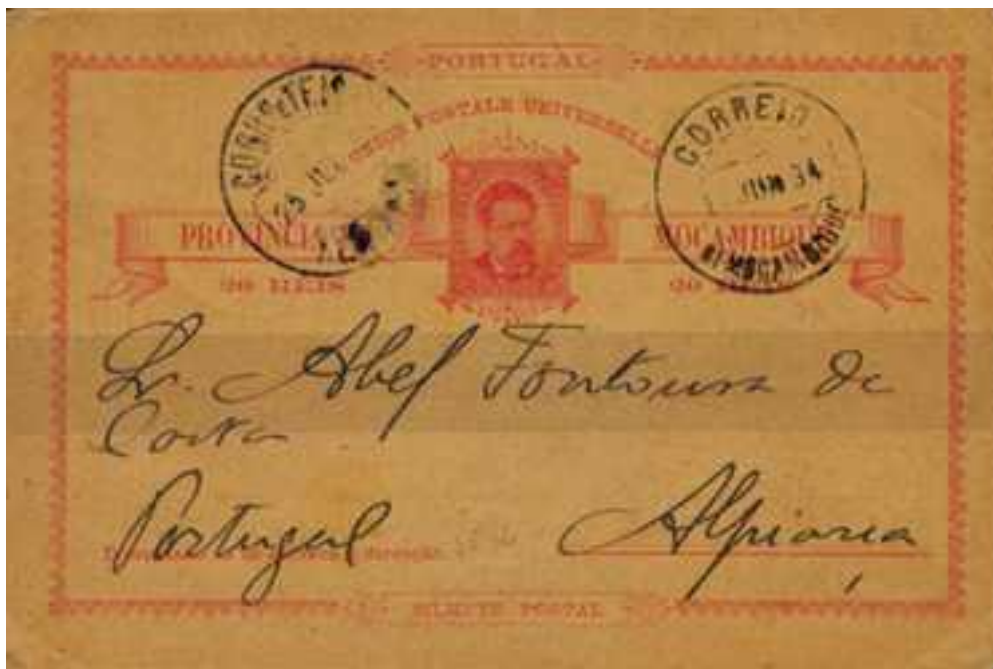 PORTUGAL
UNION POSTALE UNIVERSELLE
CORREIO
JUN 94
MOÇAMBIQUE
PROVINCIA
MOÇAMBIQUE
20 REIS
20
Sr. Abel Fontoura da
Costa
Portugal
Alpiarça
BILHETE POSTAL